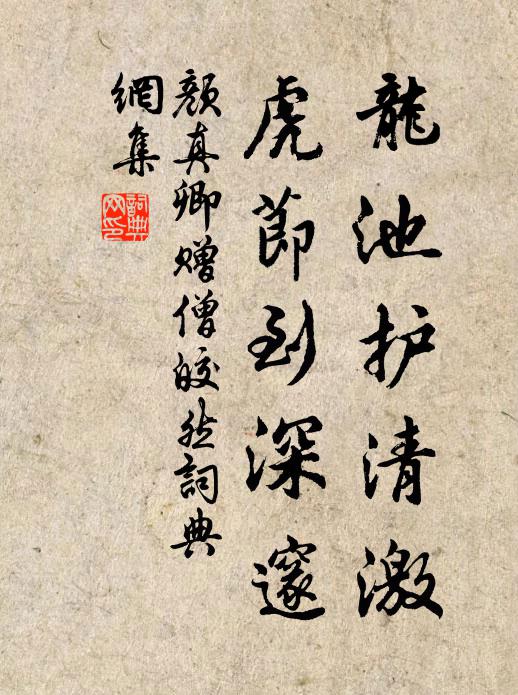 龍池护清激
虎節到深邃
顏真卿赠僧皎然詞典
網集
詞典
网印